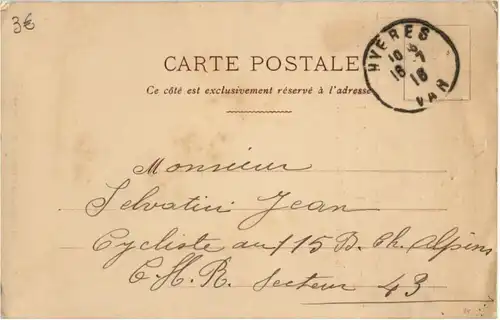 3€
HYÈRES
10
18 7
16
VAR
CARTE POSTALE
Ce côté est exclusivement réservé à l'adresse
Monsieur
Selvatici Jean
Cycliste au 115 B. Ch. Alpins
C. H. R. Secteur 43